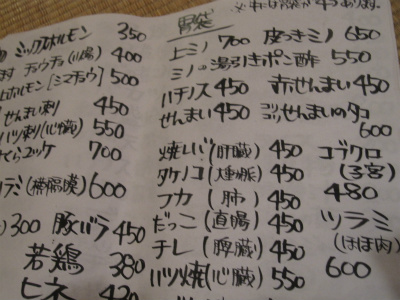 ミックスホルモン 350
チョウチョウ(小腸) 400
上ホルモン[シマチョウ] 500
せんまい刺 450
ハツ刺(心臓) 550
さくらユッケ 700
ハラミ(横隔膜) 600
300 豚バラ 450
若鶏 380
ヒネ 420
胃袋
上ミノ 700 皮つきミノ 650
ミノの湯引きポン酢 550
ハチノス 450 赤せんまい 450
せんまい 450 コリコリせんまいのタコ
600
焼レバ(肝臓) 450
タケノコ(大動脈) 450
フカ(肺) 450
だっこ(直腸) 450
チレ(脾臓) 450
ハツ焼(心臓) 550
コブクロ
(子宮)
480
ツラミ
(ほほ肉)
600